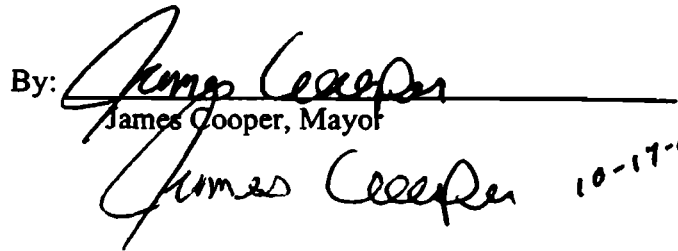 By: James Cooper
James Cooper, Mayor
James Cooper 10-17-